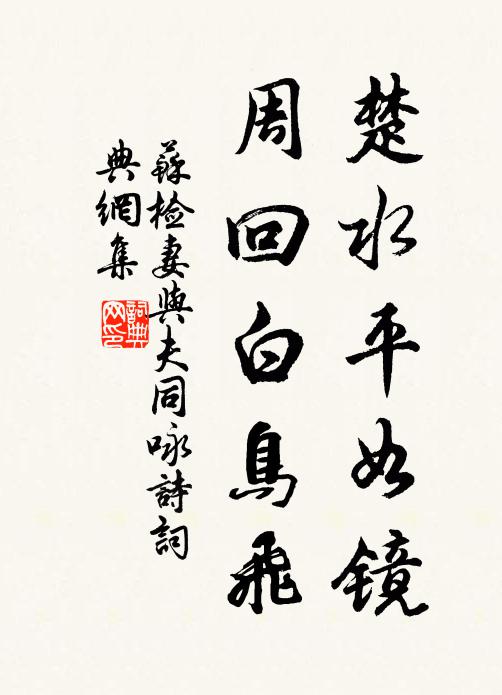 楚水平如镜
周回白鳥飛
蘇检妻與夫同咏詩詞
典網集
詞典
网印